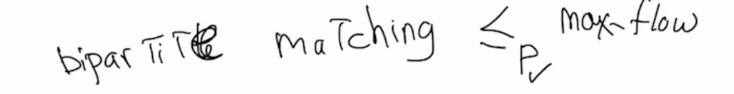 biparTiTe maTching ≤ₚ max-flow